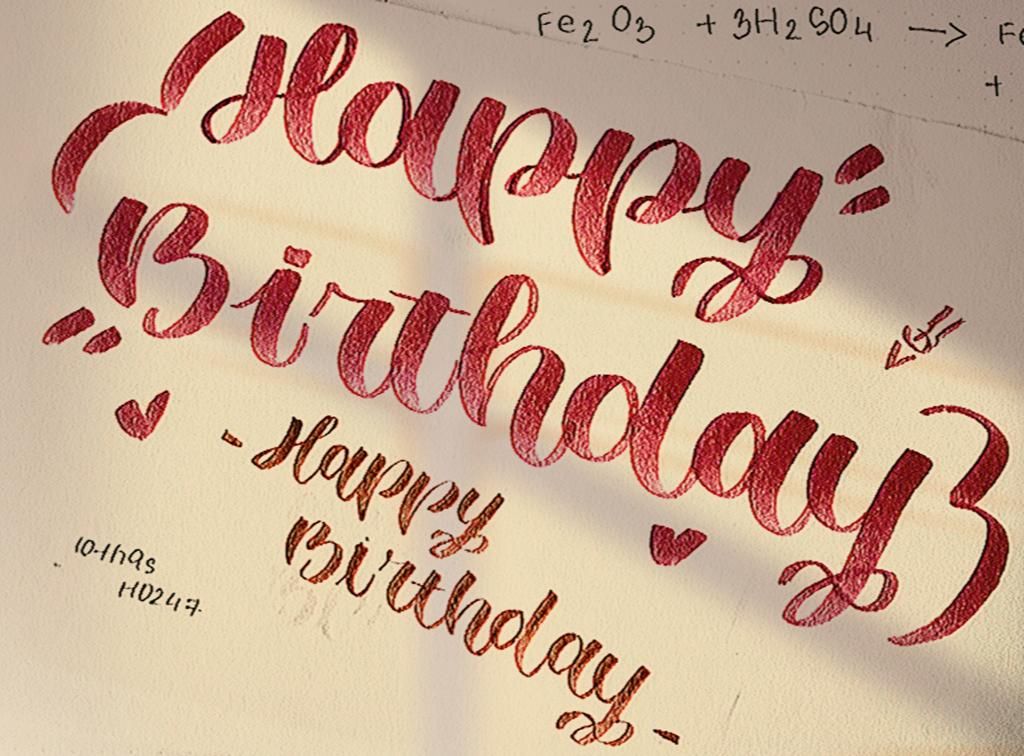 Fe₂O₃ + 3H₂SO₄ → Fe
+
Happy
Birthday
- Happy
Birthday -
HD247